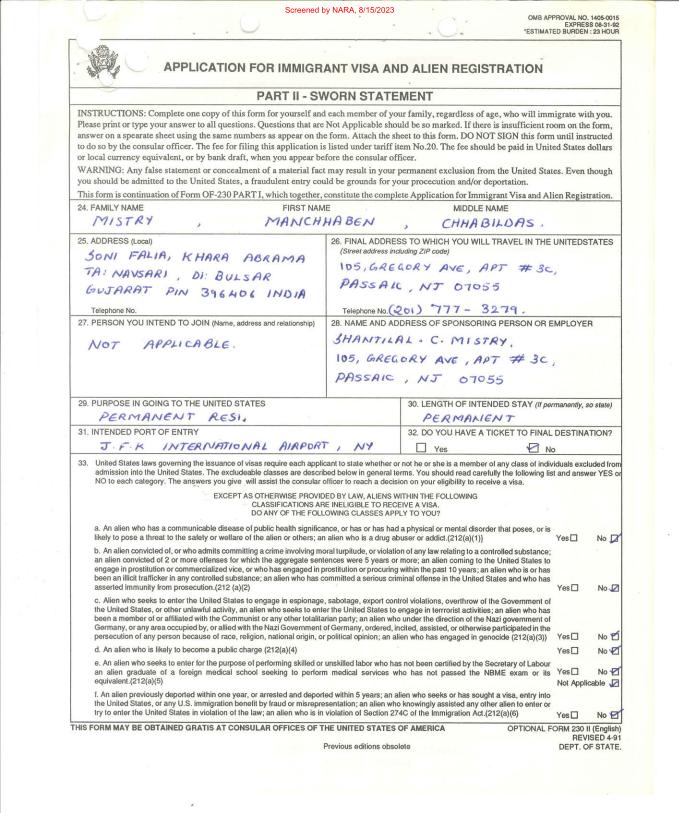 Screened by NARA, 8/15/2023
OMB APPROVAL NO. 1405-0015
EXPRESS 08-31-92
*ESTIMATED BURDEN : 23 HOUR
APPLICATION FOR IMMIGRANT VISA AND ALIEN REGISTRATION
PART II - SWORN STATEMENT
INSTRUCTIONS: Complete one copy of this form for yourself and each member of your family, regardless of age, who will immigrate with you.
Please print or type your answer to all questions. Questions that are Not Applicable should be so marked. If there is insufficient room on the form,
answer on a spearate sheet using the same numbers as appear on the form. Attach the sheet to this form. DO NOT SIGN this form until instructed
to do so by the consular officer. The fee for filing this application is listed under tariff item No.20. The fee should be paid in United States dollars
or local currency equivalent, or by bank draft, when you appear before the consular officer.
WARNING: Any false statement or concealment of a material fact may result in your permanent exclusion from the United States. Even though
you should be admitted to the United States, a fraudulent entry could be grounds for your procecution and/or deportation.
This form is continuation of Form OF-230 PART I, which together, constitute the complete Application for Immigrant Visa and Alien Registration.
24. FAMILY NAME FIRST NAME MIDDLE NAME
MISTRY , MANCHHABEN , CHHABILDAS .
25. ADDRESS (Local)
SONI FALIA, KHARA ABRAMA
TA: NAVSARI , DI: BULSAR
GUJARAT PIN 396406 INDIA
Telephone No.
26. FINAL ADDRESS TO WHICH YOU WILL TRAVEL IN THE UNITEDSTATES
(Street address including ZIP code)
105, GREGORY AVE, APT # 3C,
PASSAIC , NJ 07055
Telephone No. (201) 777 - 3279.
27. PERSON YOU INTEND TO JOIN (Name, address and relationship)
NOT APPLICABLE.
28. NAME AND ADDRESS OF SPONSORING PERSON OR EMPLOYER
SHANTILAL . C . MISTRY.
105, GREGORY AVE , APT # 3C,
PASSAIC , NJ 07055
29. PURPOSE IN GOING TO THE UNITED STATES
PERMANENT RESI.
30. LENGTH OF INTENDED STAY (If permanently, so state)
PERMANENT
31. INTENDED PORT OF ENTRY
J.F.K INTERNATIONAL AIRPORT , NY
32. DO YOU HAVE A TICKET TO FINAL DESTINATION?
Yes No
33. United States laws governing the issuance of visas require each applicant to state whether or not he or she is a member of any class of individuals excluded from
admission into the United States. The excludeable classes are described below in general terms. You should read carefully the following list and answer YES or
NO to each category. The answers you give will assist the consular officer to reach a decision on your eligibility to receive a visa.
EXCEPT AS OTHERWISE PROVIDED BY LAW, ALIENS WITHIN THE FOLLOWING
CLASSIFICATIONS ARE INELIGIBLE TO RECEIVE A VISA.
DO ANY OF THE FOLLOWING CLASSES APPLY TO YOU?
a. An alien who has a communicable disease of public health significance, or has or has had a physical or mental disorder that poses, or is
likely to pose a threat to the safety or welfare of the alien or others; an alien who is a drug abuser or addict.(212(a)(1)) Yes No
b. An alien convicted of, or who admits committing a crime involving moral turpitude, or violation of any law relating to a controlled substance;
an alien convicted of 2 or more offenses for which the aggregate sentences were 5 years or more; an alien coming to the United States to
engage in prostitution or commercialized vice, or who has engaged in prostitution or procuring within the past 10 years; an alien who is or has
been an illicit trafficker in any controlled substance; an alien who has committed a serious criminal offense in the United States and who has
asserted immunity from prosecution.(212 (a)(2) Yes No
c. Alien who seeks to enter the United States to engage in espionage, sabotage, export control violations, overthrow of the Government of
the United States, or other unlawful activity, an alien who seeks to enter the United States to engage in terrorist activities; an alien who has
been a member of or affiliated with the Communist or any other totalitarian party; an alien who under the direction of the Nazi government of
Germany, or any area occupied by, or allied with the Nazi Government of Germany, ordered, incited, assisted, or otherwise participated in the
persecution of any person because of race, religion, national origin, or political opinion; an alien who has engaged in genocide (212(a)(3)) Yes No
d. An alien who is likely to become a public charge (212(a)(4) Yes No
e. An alien who seeks to enter for the purpose of performing skilled or unskilled labor who has not been certified by the Secretary of Labour
an alien graduate of a foreign medical school seeking to perform medical services who has not passed the NBME exam or its Yes No
equivalent.(212(a)(5) Not Applicable
f. An alien previously deported within one year, or arrested and deported within 5 years; an alien who seeks or has sought a visa, entry into
the United States, or any U.S. immigration benefit by fraud or misrepresentation; an alien who knowingly assisted any other alien to enter or
try to enter the United States in violation of the law; an alien who is in violation of Section 274C of the Immigration Act.(212(a)(6) Yes No
THIS FORM MAY BE OBTAINED GRATIS AT CONSULAR OFFICES OF THE UNITED STATES OF AMERICA
OPTIONAL FORM 230 II (English)
REVISED 4-91
Previous editions obsolete DEPT. OF STATE.